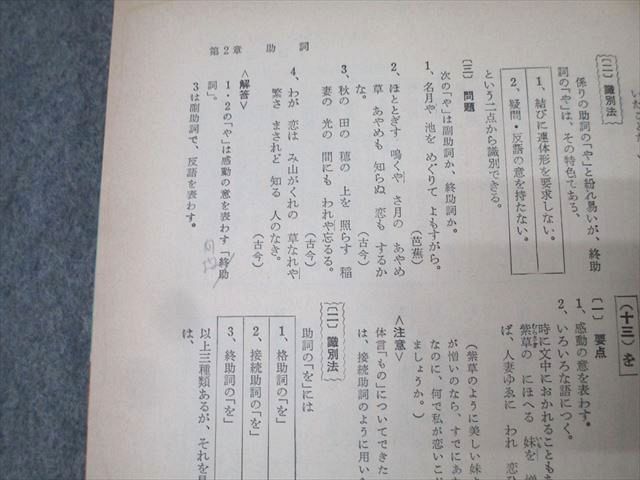 第2章　助　詞
〔二〕識別法
係りの助詞の「や」と紛れ易いが、終助
詞の「や」は、その特色である、
1、結びに連体形を要求しない。
2、疑問・反語の意を持たない。
という二点から識別できる。
〔三〕問題
次の「や」は副助詞か、終助詞か。
1、名月や 池を めぐりて よもすがら。
（芭蕉）
2、ほととぎす 鳴くや さ月の あやめ
草 あやめも 知らぬ 恋も するか
な。
（古今）
3、秋の 田の 穂の 上を 照らす 稲
妻の 光の 間にも われや忘るる。
（古今）
4、わが 恋は み山がくれの 草なれや
繁さ まされど 知る 人のなき。
（古今）
＜解答＞
1・2の「や」は感動の意を表わす「終助
詞」。
3は副助詞で、反語を表わす。
（十三）を
〔一〕要点
1、感動の意を表わす。
2、いろいろな語につく。
時に文中におかれることもあ
紫草の にほへる 妹を 憎
ば、人妻ゆゑに われ 恋ひ
（紫草のように美しい妹よ
が憎いのなら、すでにあ
なのに、何で私が恋いこが
ましょうか。）
＜注意＞
体言「もの」についてできた
は、接続助詞のように用い
〔二〕識別法
助詞の「を」には
1、格助詞の「を」
2、接続助詞の「を」
3、終助詞の「を」
以上三種類あるが、それを見
は、